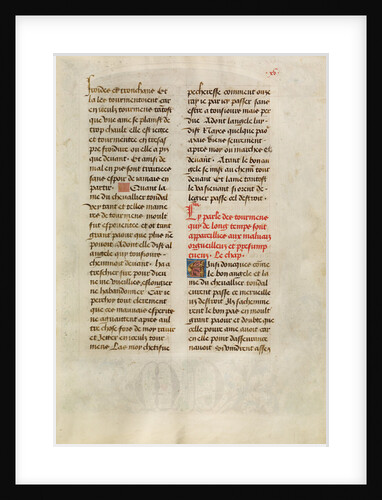 .xv.
froides et tronchans Et
la les tourmentoient car
en iceulx tourmens tantost
que une ame se plaint de
trop chault elle est iectee
et tourmentee en tres as
pre froidure ou elle a pis
que devant Et ainsi de
mal en pis sont traictees
sans espoir de iamais en
partir Quant la
me du chevallier tondal
vey tant et telles manie
res de tourmens moult
fut espoventee et ot tant
grant paour que plus nen
pouoit Adont elle dist al
angele quy tousiours
cheminoit devant ha a
treschier sire pour dieu
ne me vueilliez eslongier
ne habandonner Car je
perchoy tout clerement
que ces mauvais esperits
ne aguaitent apres aul
tre chose fors de moy ravir
et jetter en iceulx tour
mens Las moy chetifve
pecheresse comment ose
ray je par y passer sans
estre a tousiours mais per
due Adont langele lui
dist Nayes quelque paour
mais viens seurement
apres moy ou marches et
devant Atant le bon an
gele se mist au chemin tout
devant Et lame tantost
le va sievant si ot de
legier passe cel destroit
Cy parle des tourmens
quy de long temps sont
appareilliez aux mauvais
orguelleux et presump
tueux Le chap
Ainsi doncques comme
le bon angele et la
me du chevallier tondal
eurent passe ce merveille
ux destroit Ilz sachemine
rent le bon pas en moult
grant paour et doubte que
celle povre ame avoit car
en elle point dasseurance
navoit Si vindrent assez